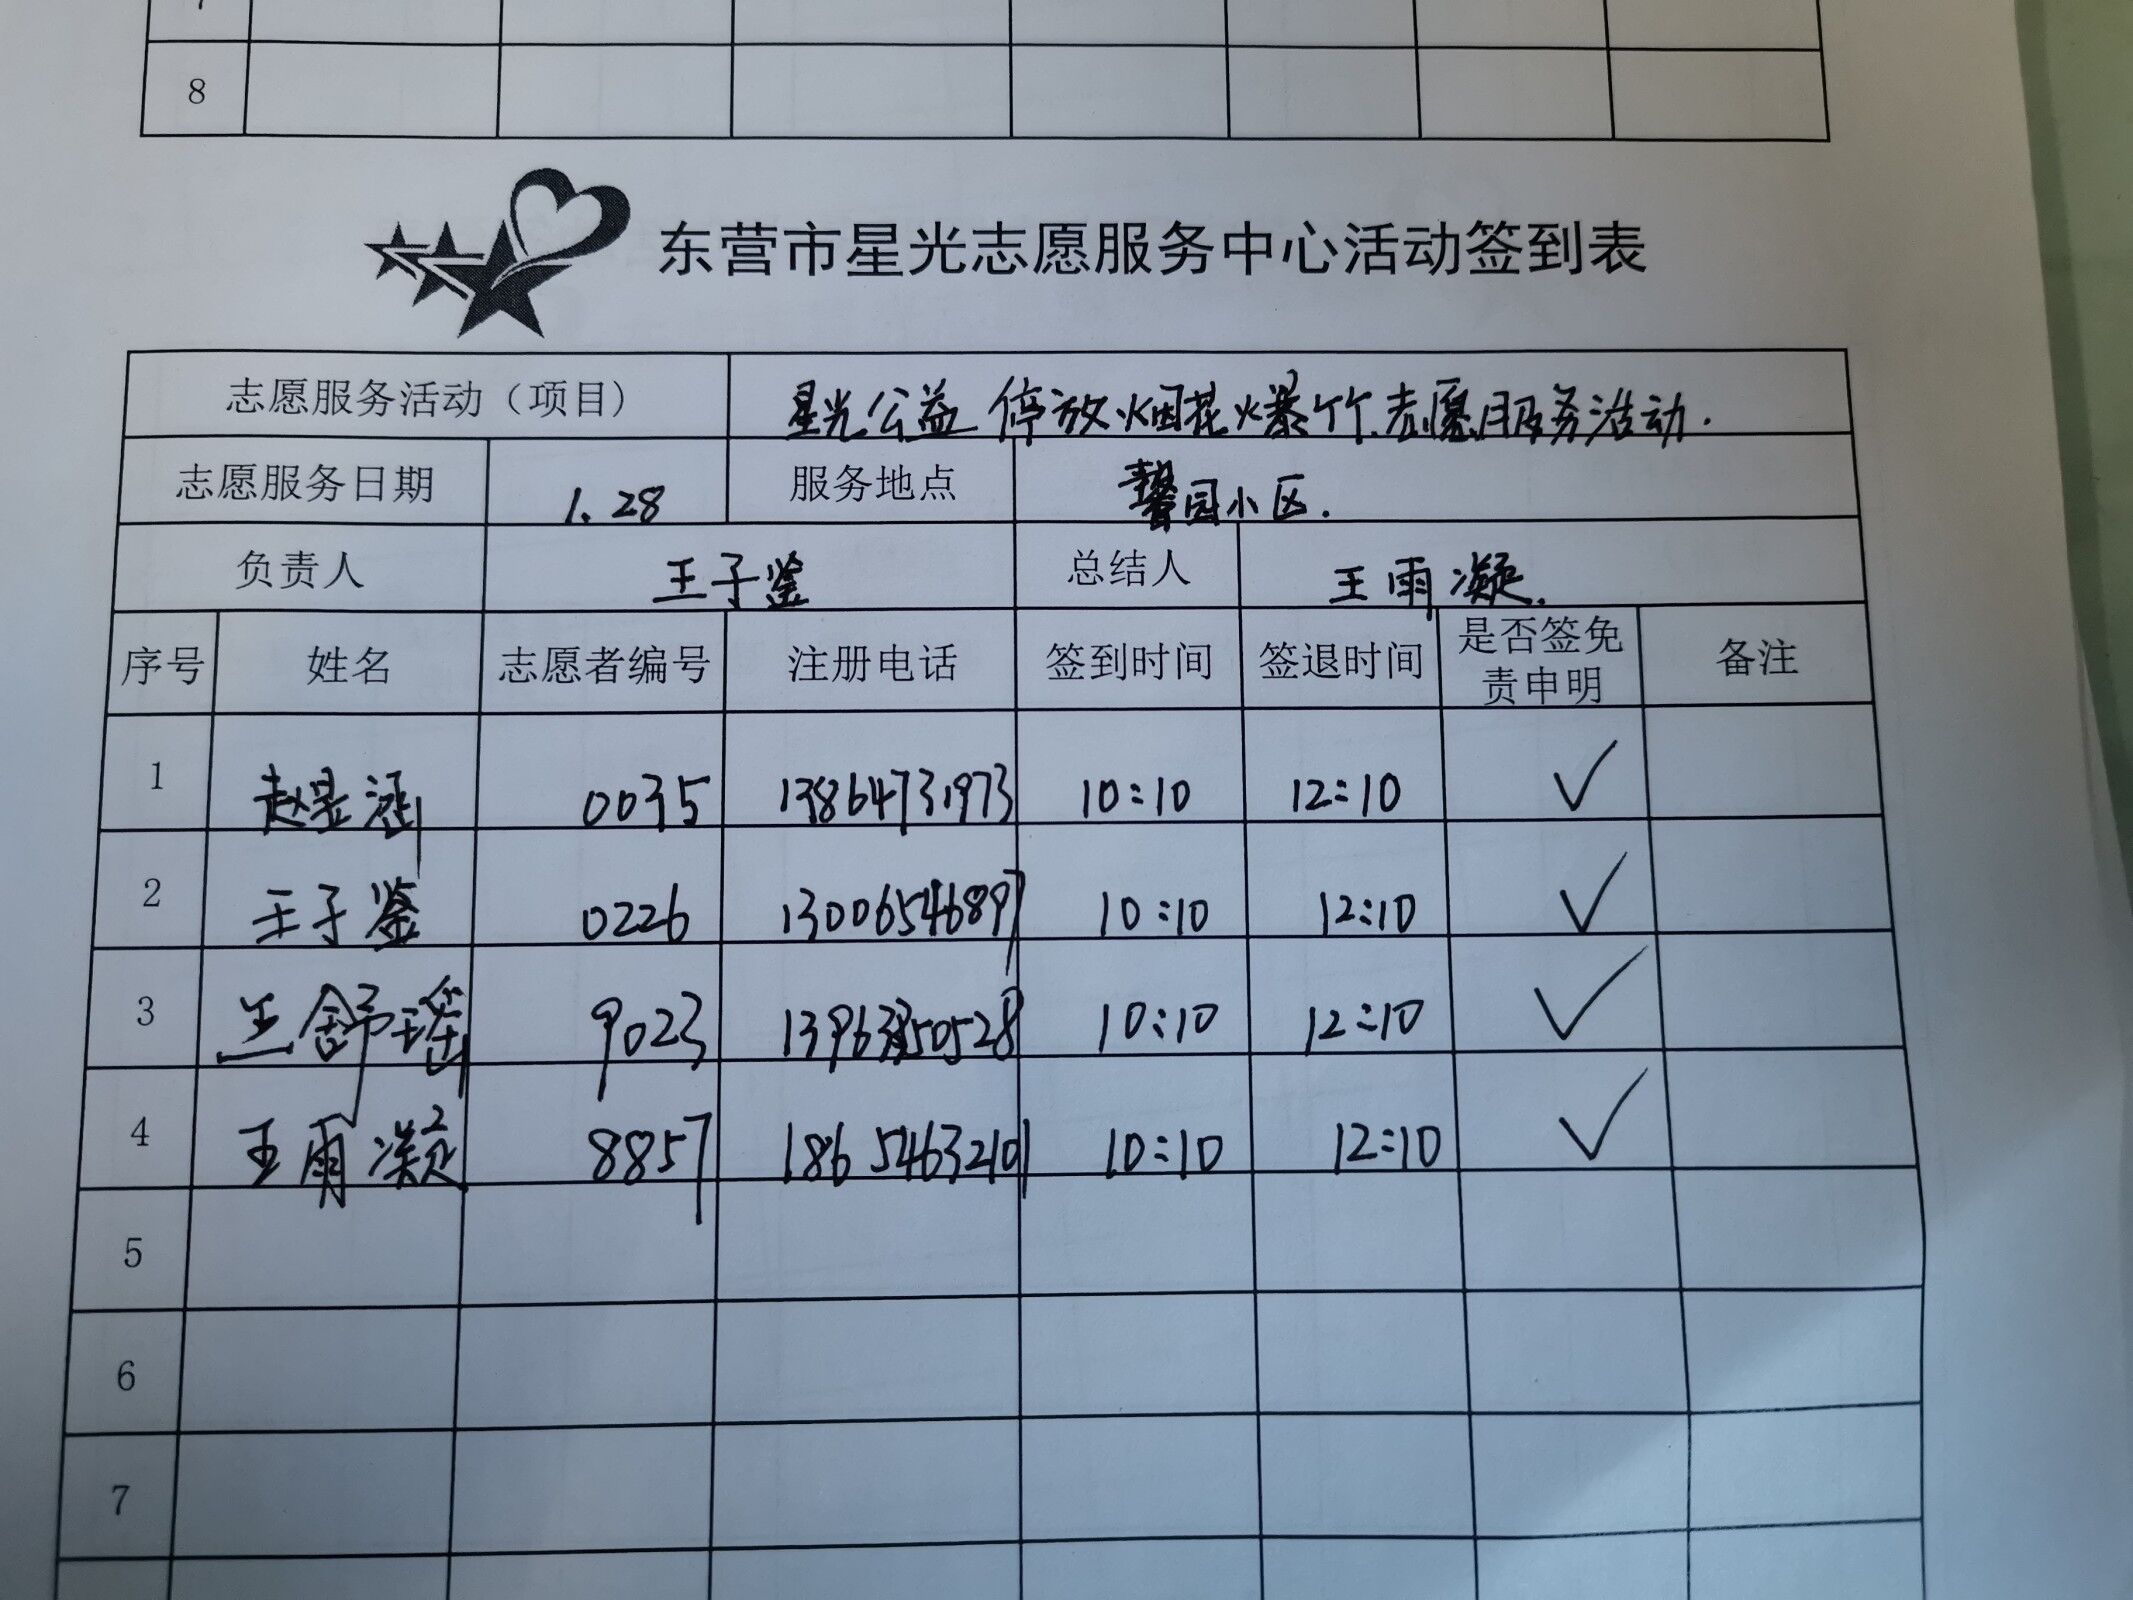 8
东营市星光志愿服务中心活动签到表
志愿服务活动（项目） 星光公益 停放烟花爆竹志愿服务活动.
志愿服务日期 1.28 服务地点 馨园小区.
负责人 王子鉴 总结人 王雨凝.
序号 姓名 志愿者编号 注册电话 签到时间 签退时间 是否签免责申明 备注
1 赵昱涵 0035 13864731973 10:10 12:10 ✓
2 王子鉴 0226 13006546897 10:10 12:10 ✓
3 王舒瑶 9023 10:10 12:10 ✓
4 王雨凝 8857 18654632101 10:10 12:10 ✓
5
6
7